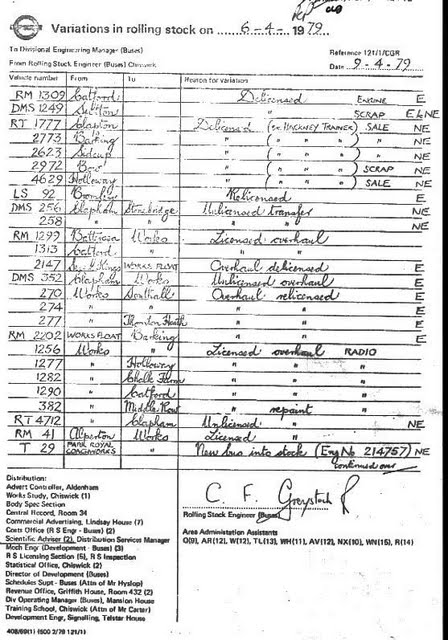 Variations in rolling stock on 6-4-1979
To Divisional Engineering Manager (Buses) Reference 121/1/CGR
From Rolling Stock Engineer (Buses) Chiswick Date 9-4-79
Vehicle number From To Reason for variation
RM 1309 Catford Delicensed ENGINE E
DMS 1249 Sutton " SCRAP E & NE
RT 1777 Clapton Delicensed (ex HACKNEY TRAINER) SALE NE
2773 Barking " ( " " ) " NE
2623 Sidcup " ( " " ) " NE
2972 Bow " ( " " ) SCRAP NE
4629 Holloway " ( " " ) SALE NE
LS 92 Bromley Relicensed E
DMS 256 Clapham Stonebridge Unlicensed transfer NE
258 " " " " NE
RM 1299 Battersea Works Licensed overhaul
1313 Catford " " "
2147 WORKS FLOAT Overhaul delicensed E
DMS 352 Clapham Works Unlicensed overhaul E
270 Works Southall Overhaul relicensed E
274 " " " " E
277 " Thornton Heath " " E
RM 2202 WORKS FLOAT Barking " " E
1256 Works " Licensed overhaul RADIO
1277 " Holloway " " "
1282 " Chalk Farm " " "
1290 " Catford " " "
382 " Middle Row " repaint "
RT 4712 " Clapham Unlicensed " NE
RM 41 Alperton Works Licensed "
T 29 PARK ROYAL COACHWORKS New bus into stock (Eng No 214757) NE
continued over
Distribution:
Advert Controller, Aldenham
Works Study, Chiswick (1)
Body Spec Section
Central Record, Room 34
Commercial Advertising, Lindsay House (7)
Costs Office (R S Engr - Buses) (2)
Scientific Adviser (2), Distribution Services Manager
Mech Engr (Development - Buses) (3)
R S Licensing Section (5), R S Inspection
Statistical Office, Chiswick (2)
Director of Development (Buses)
Schedules Supt - Buses (Attn of Mr Hyslop)
Revenue Office, Griffith House, Room 432 (2)
Div Operating Manager (Buses), Mansion House
Training School, Chiswick (Attn of Mr Carter)
Development Engr, Signalling, Telstar House
C. F.
Rolling Stock Engineer (Buses)
Area Administration Assistants
O(9), AR(12), W(12), TL(13), WH(11), AV(12), NX(10), WN(15), R(14)